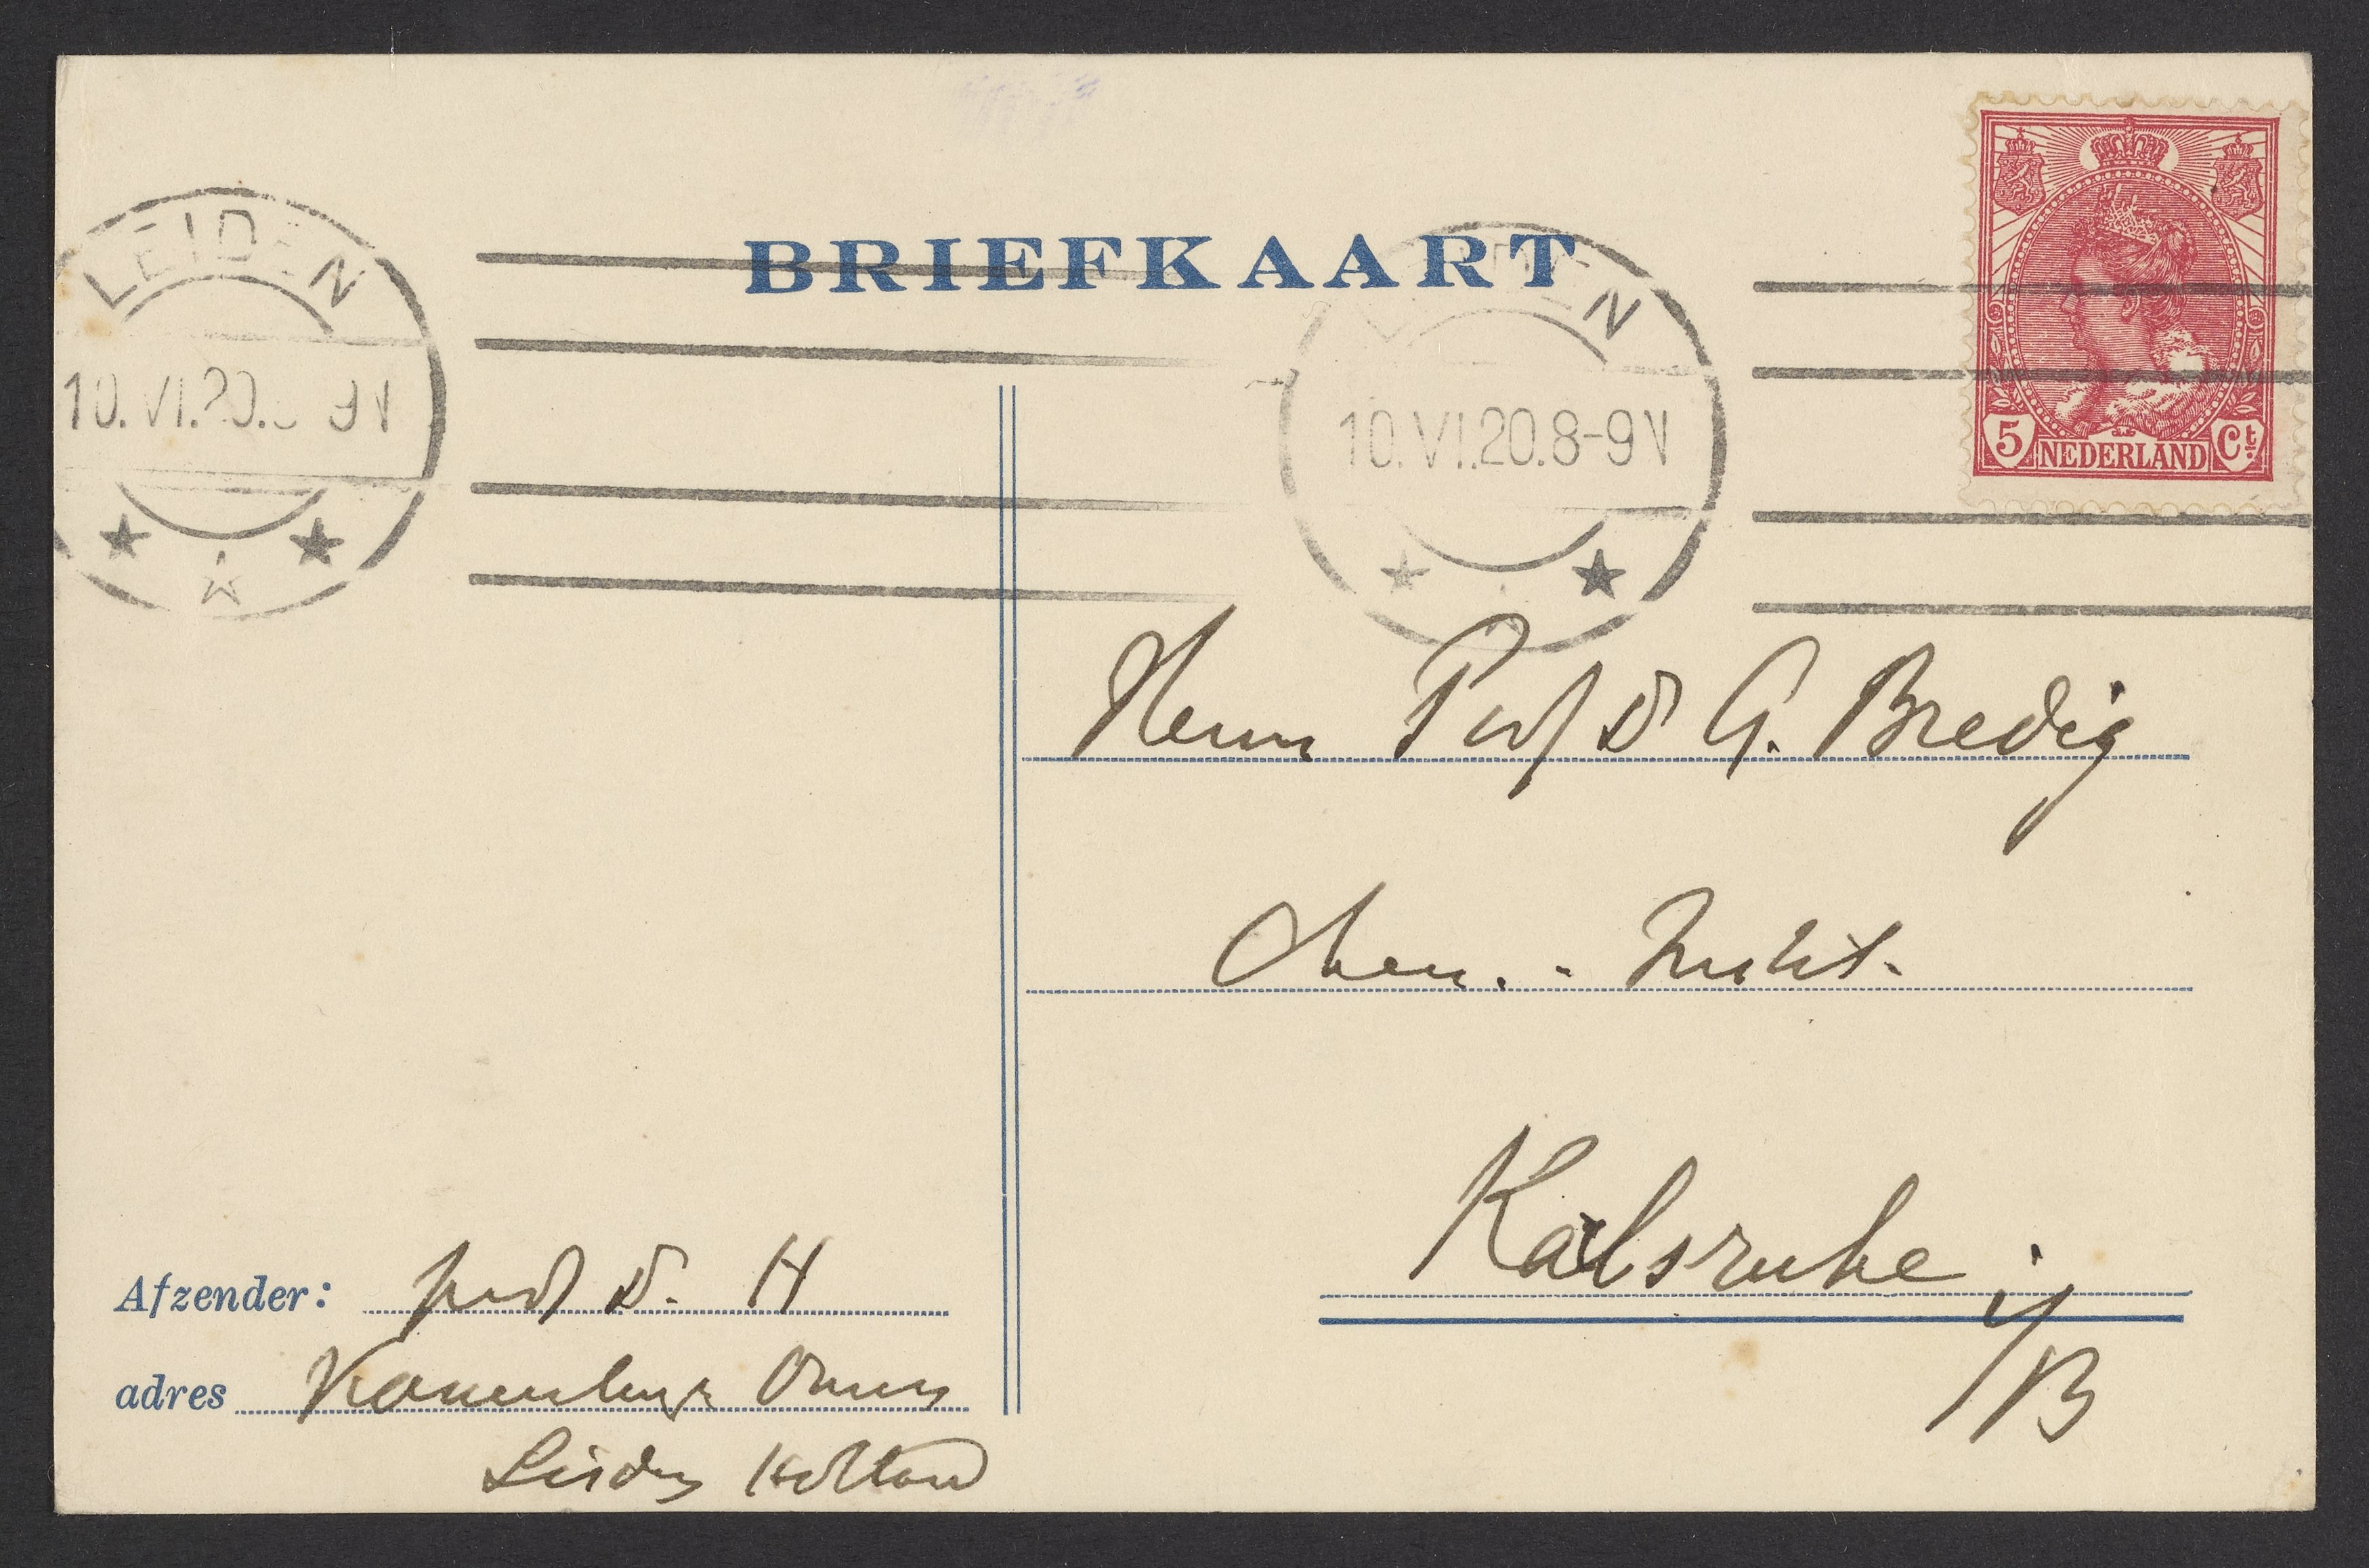 BRIEFKAART
LEIDEN
10.VI.20. 9N
LEIDEN
10.VI.20.8-9N
5 NEDERLAND Ct.
Herrn Prof Dr G. Bredig
Chem.- Instit.
Karlsruhe i/B
Afzender: prof Dr. H
adres Kamerlingh Onnes
Leiden Holland